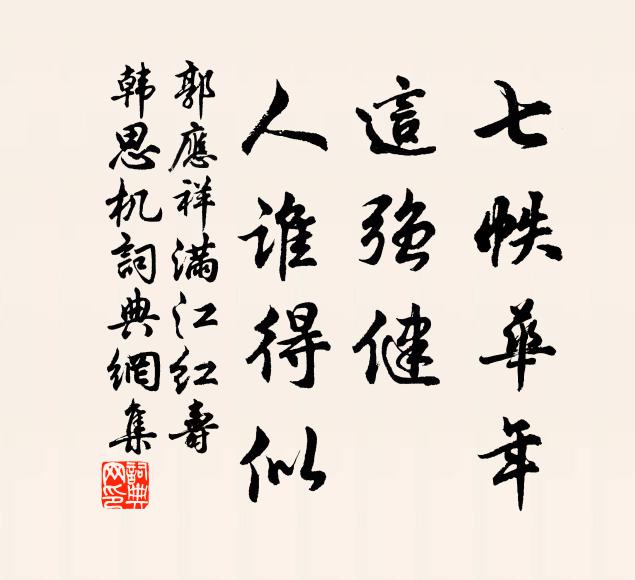 七帙華年
這強健
人誰得似
郭應祥滿江紅壽
韩思机詞典網集
詞典
网印